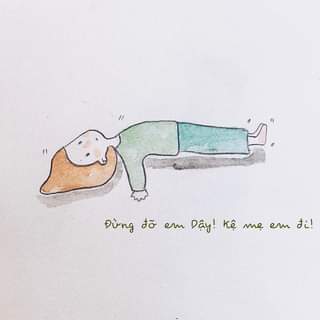 Đừng đỡ em Dậy! Kệ mẹ em đi!